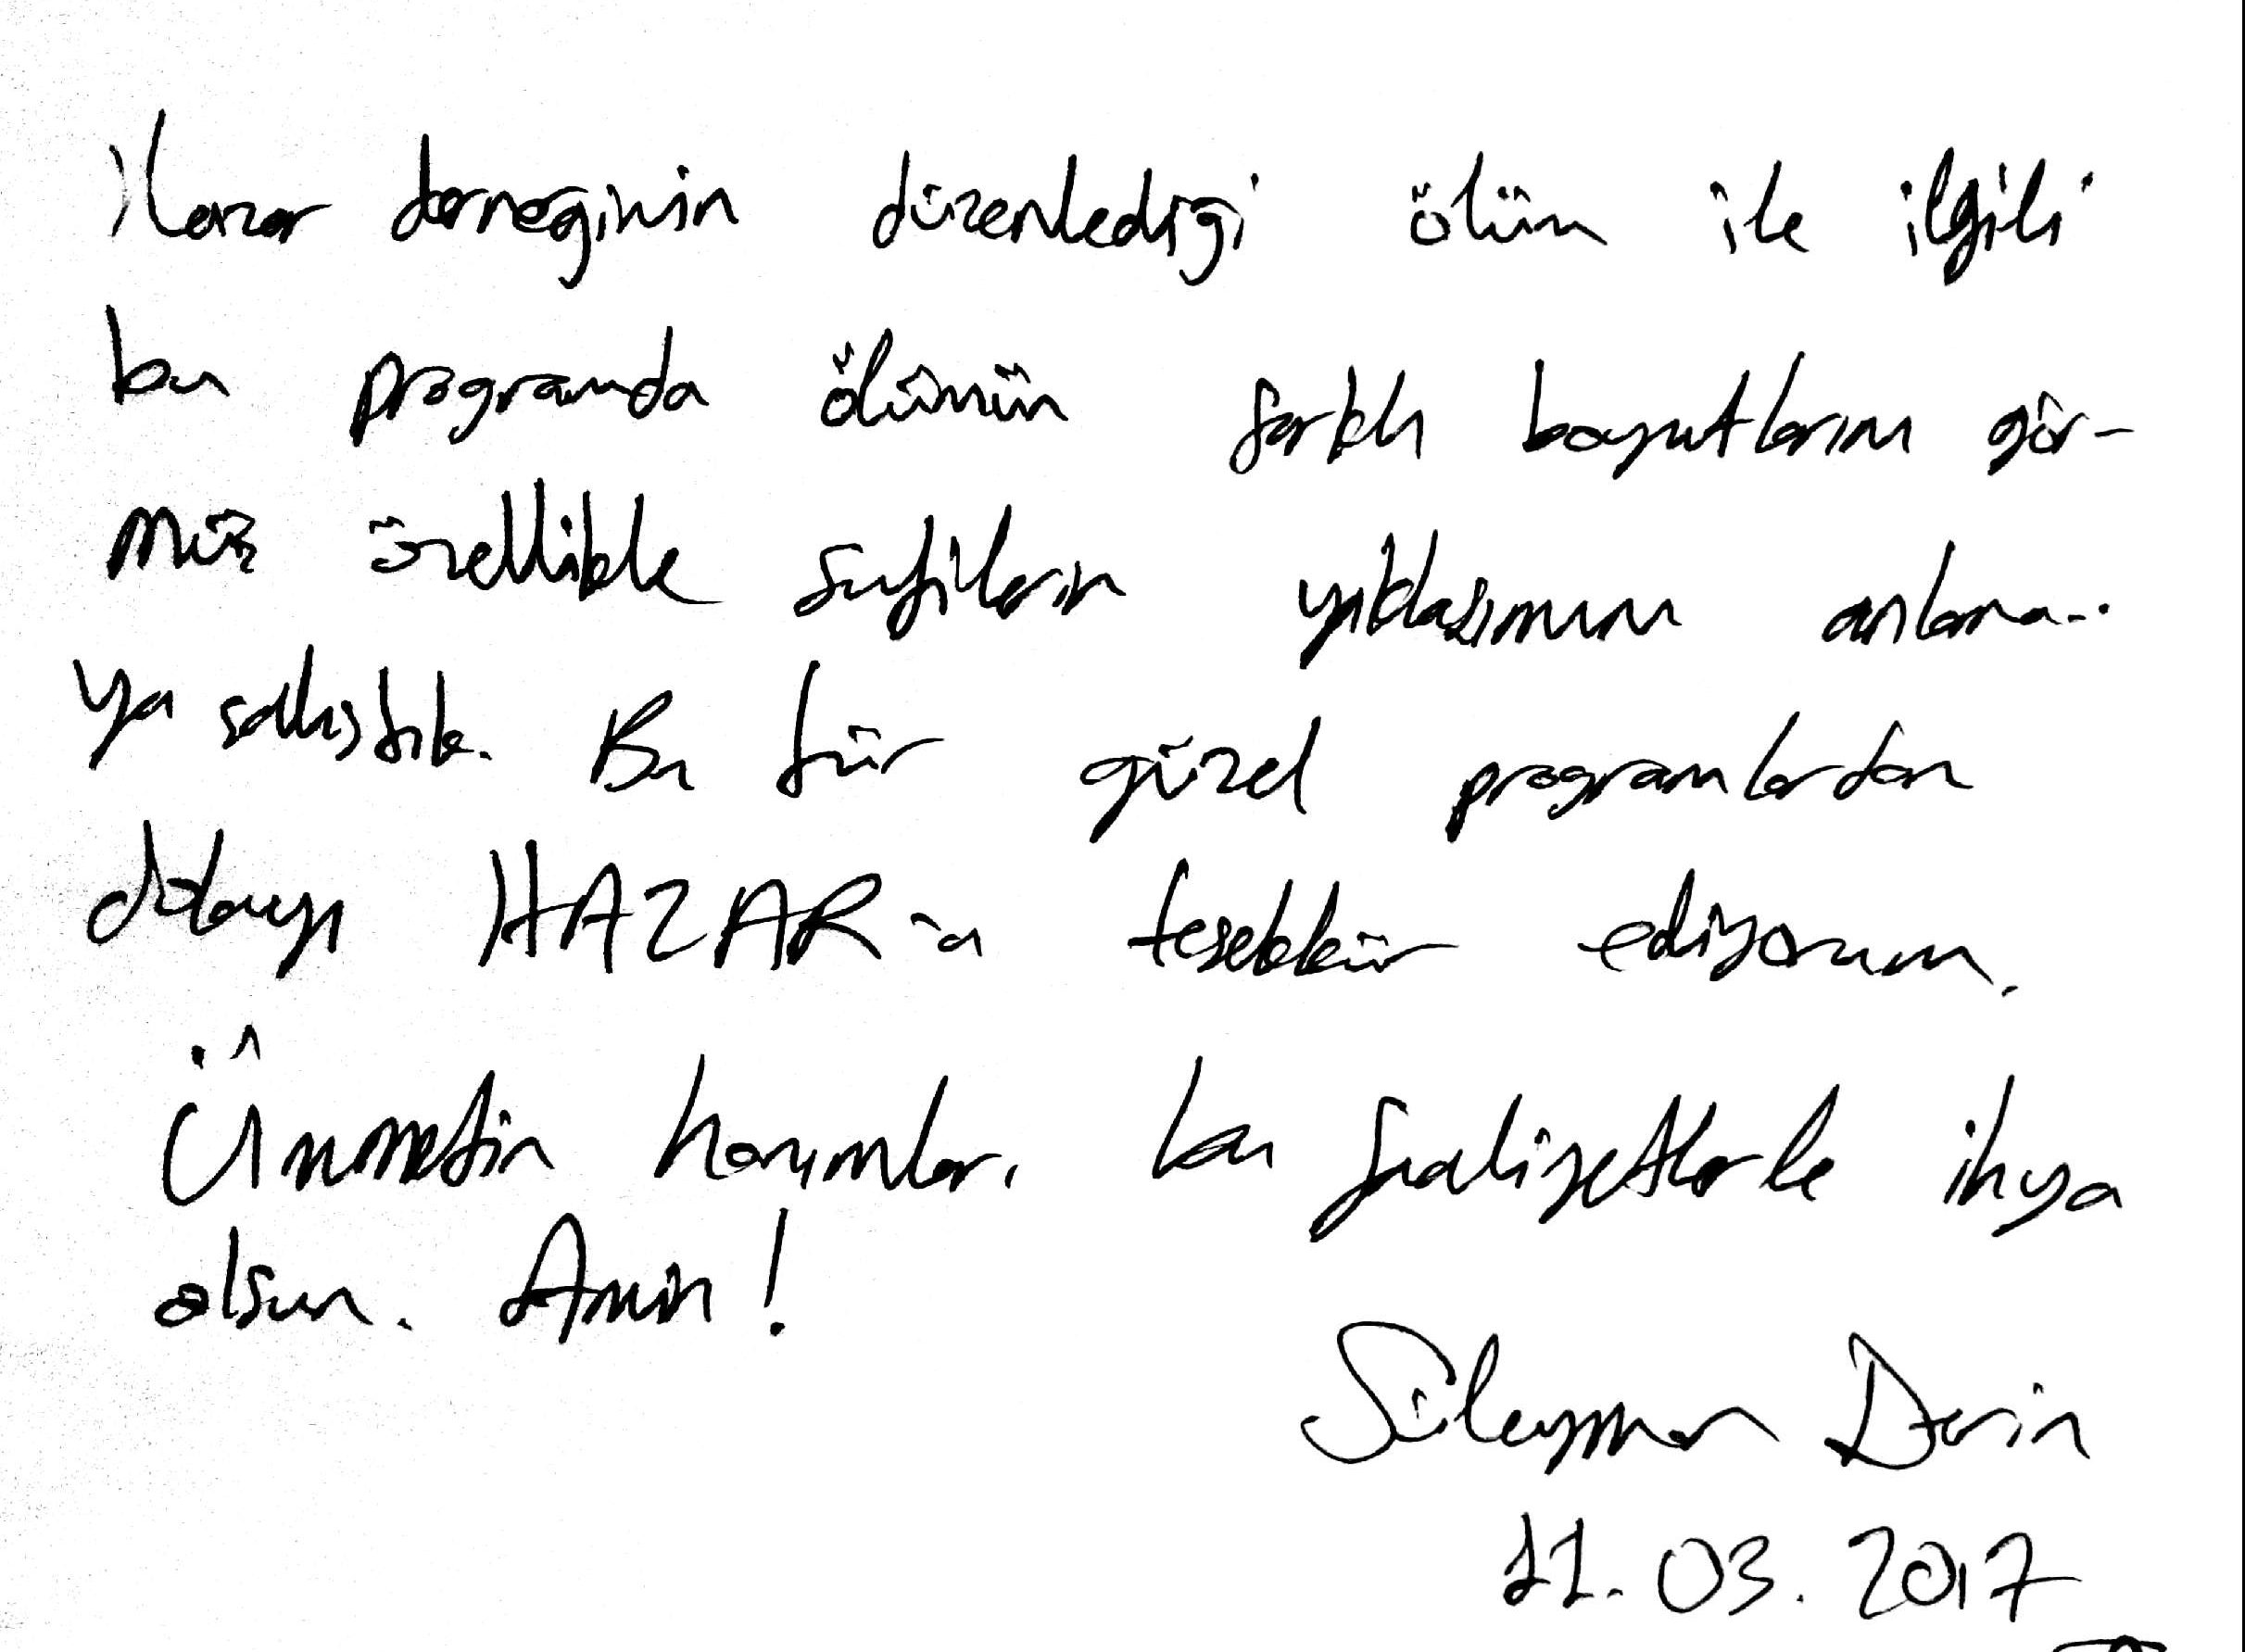 Hazar derneğinin düzenlediği ölüm ile ilgili
bu programda ölümün farklı boyutlarını gör-
müş özellikle sufilerin yaklaşımını anlama-
ya çalıştık. Bu tür güzel programlardan
dolayı HAZAR-a teşekkür ediyorum.
Ümmetin hanımları bu faaliyetlerle ihya
olsun. Amin!
Süleyman Derin
11.03.2017